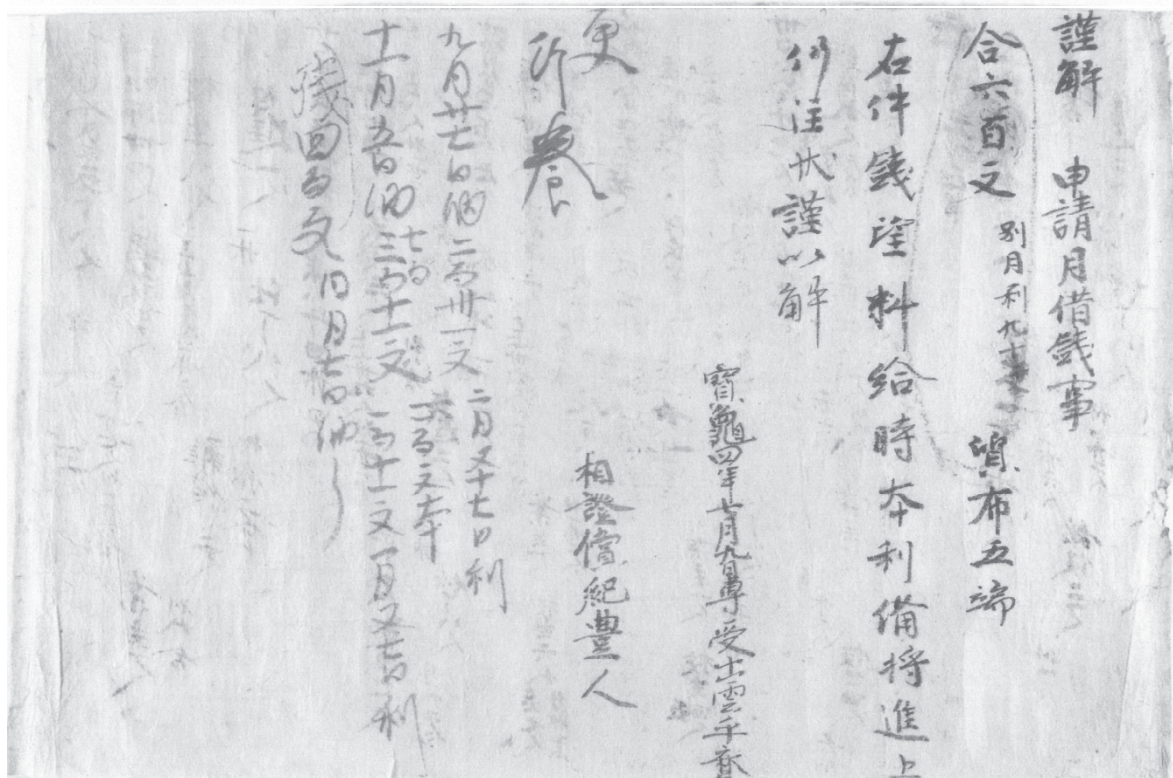 謹解　申請月借銭事
合六百文　別月利九十文　質布五端
右件銭望料給時本利備将進上
仍注状謹以解
寶龜四年七月九日専受出雲乎
相證償紀豊人
更
行
九月廿七日納二百卅一文　二月又十七日利
二百文本
十一月五日納三百十一文　百十一文一月又七日利
七日
残四百文　同月七日納